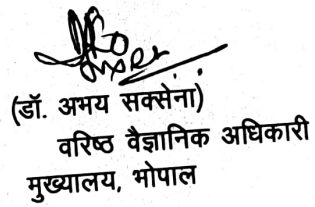 (डॉ. अभय सक्सेना)
वरिष्ठ वैज्ञानिक अधिकारी
मुख्यालय, भोपाल